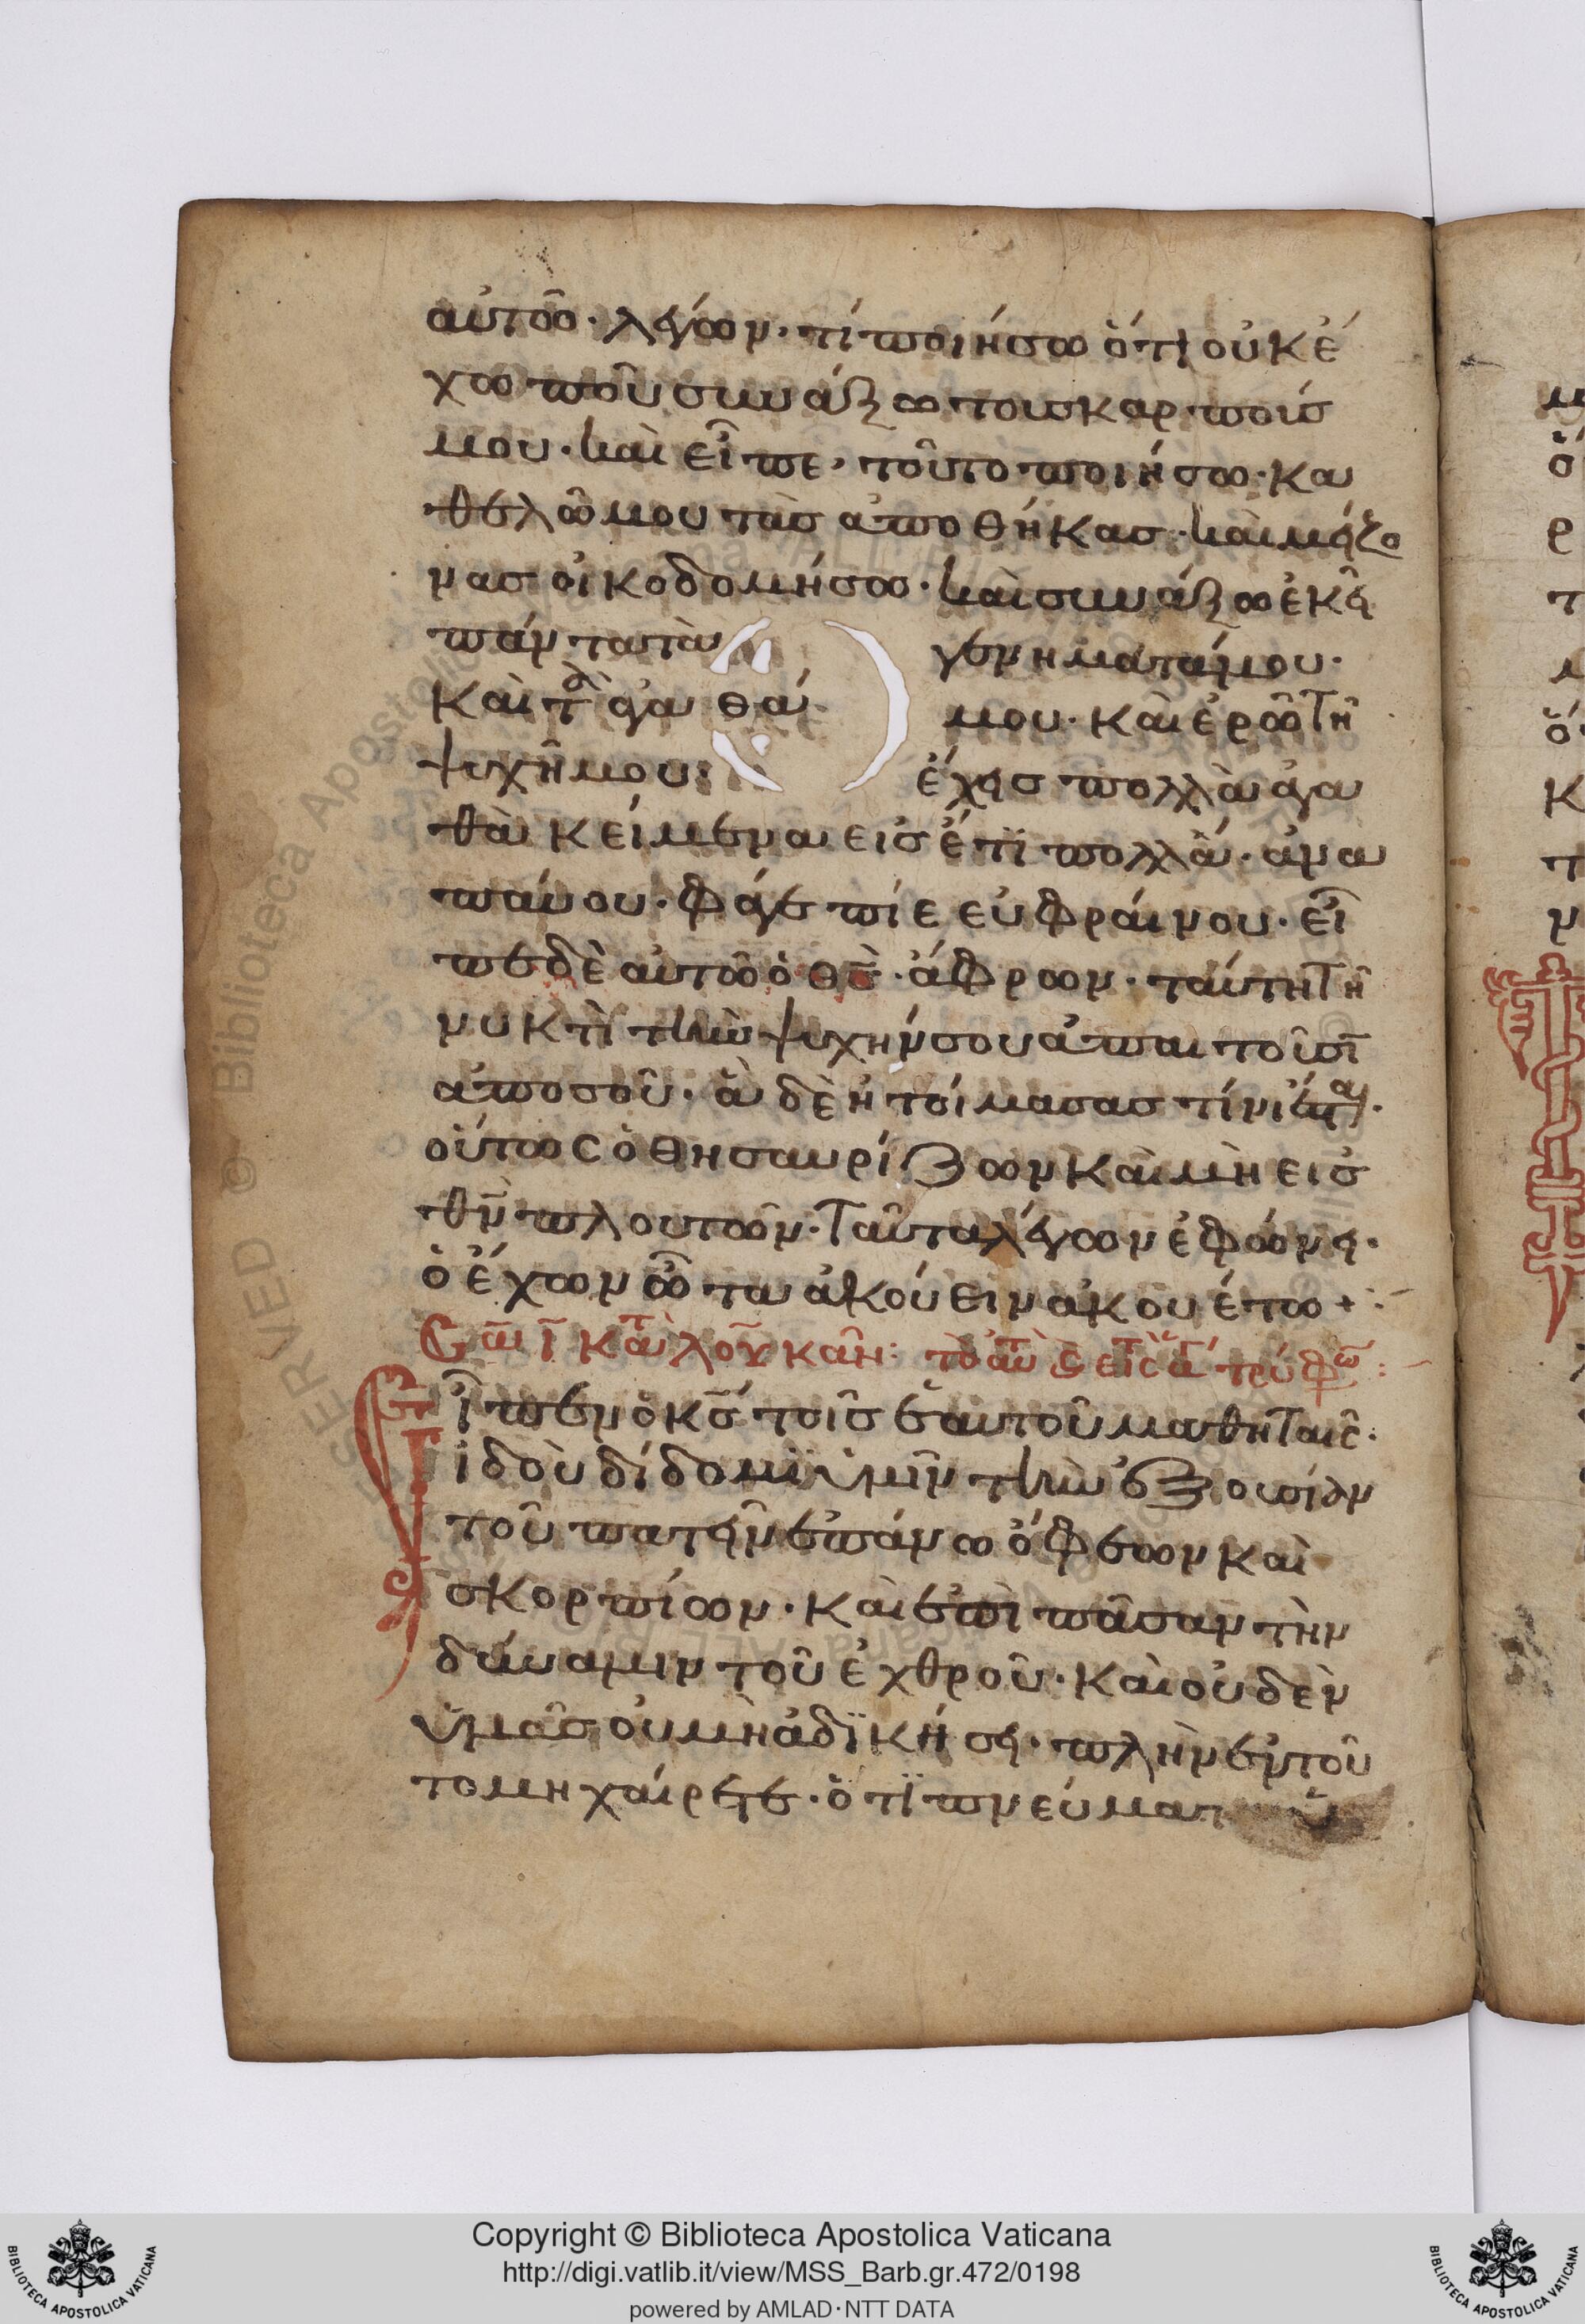 αὐτῶ· λέγων· τί ποιήσω ὅτι οὐκ έ
χω ποῦ συνάξω τοὺσ καρποὺσ
μου· καὶ εἶπε, τοῦτο ποιήσω· κα
θελῶ μου τὰσ ἀποθήκασ· καὶ μείζο
νασ οἰκοδομήσω· καὶ συνάξω ἐκεῖ
πάντα τὰ γενηματά μου·
καὶ τὰ ἀγαθά μου· καὶ ἐρῶ τῆ
ψυχῆ μου· ἔχεισ πολλὰ ἀγα
θὰ κείμενα εἰσ ἔτϊ πολλὰ· ἀνα
παύου· φάγε πίε εὐφραίνου· εἶ
πε δὲ αὐτῶ ὁ θς· ἄφρων· ταύτη τῆ
νυκτὶ τὴν ψυχήν σου ἀπαιτοῦσϊ
ἀπο σοῦ· ἃ δὲ ἡτοίμασασ τίνι ἔσται·
οὕτωσ ὁ θησαυρίζων καὶ μὴ εἰσ
θν πλουτῶν· Ταῦτα λέγων ἐφώνει·
ὁ ἔχων ὦτα ἀκούειν ἀκουέτω +
Σα ι κατ λουκαν: το αυ
ἶπεν ὁ κς τοῖσ ἑαυτοῦ μαθηταῖσ·
ἰδοὺ δίδομϊ ὑμῖν τὴν ἐξουσίαν
τοῦ πατεῖν ἐπάνω ὄφεων καὶ
σκορπίων· καὶ ἐπὶ πᾶσαν τὴν
δύναμιν τοῦ ἐχθροῦ· καὶ οὐδὲν
ὑμᾶσ οὐ μὴ ἀδϊκήσει· πλὴν ἐν τού
το μη χαίρετε· ὅτϊ πνεύματ
Copyright © Biblioteca Apostolica Vaticana
http://digi.vatlib.it/view/MSS_Barb.gr.472/0198
powered by AMLAD·NTT DATA
BIBLIOTECA APOSTOLICA VATICANA
BIBLIOTECA APOSTOLICA VATICANA